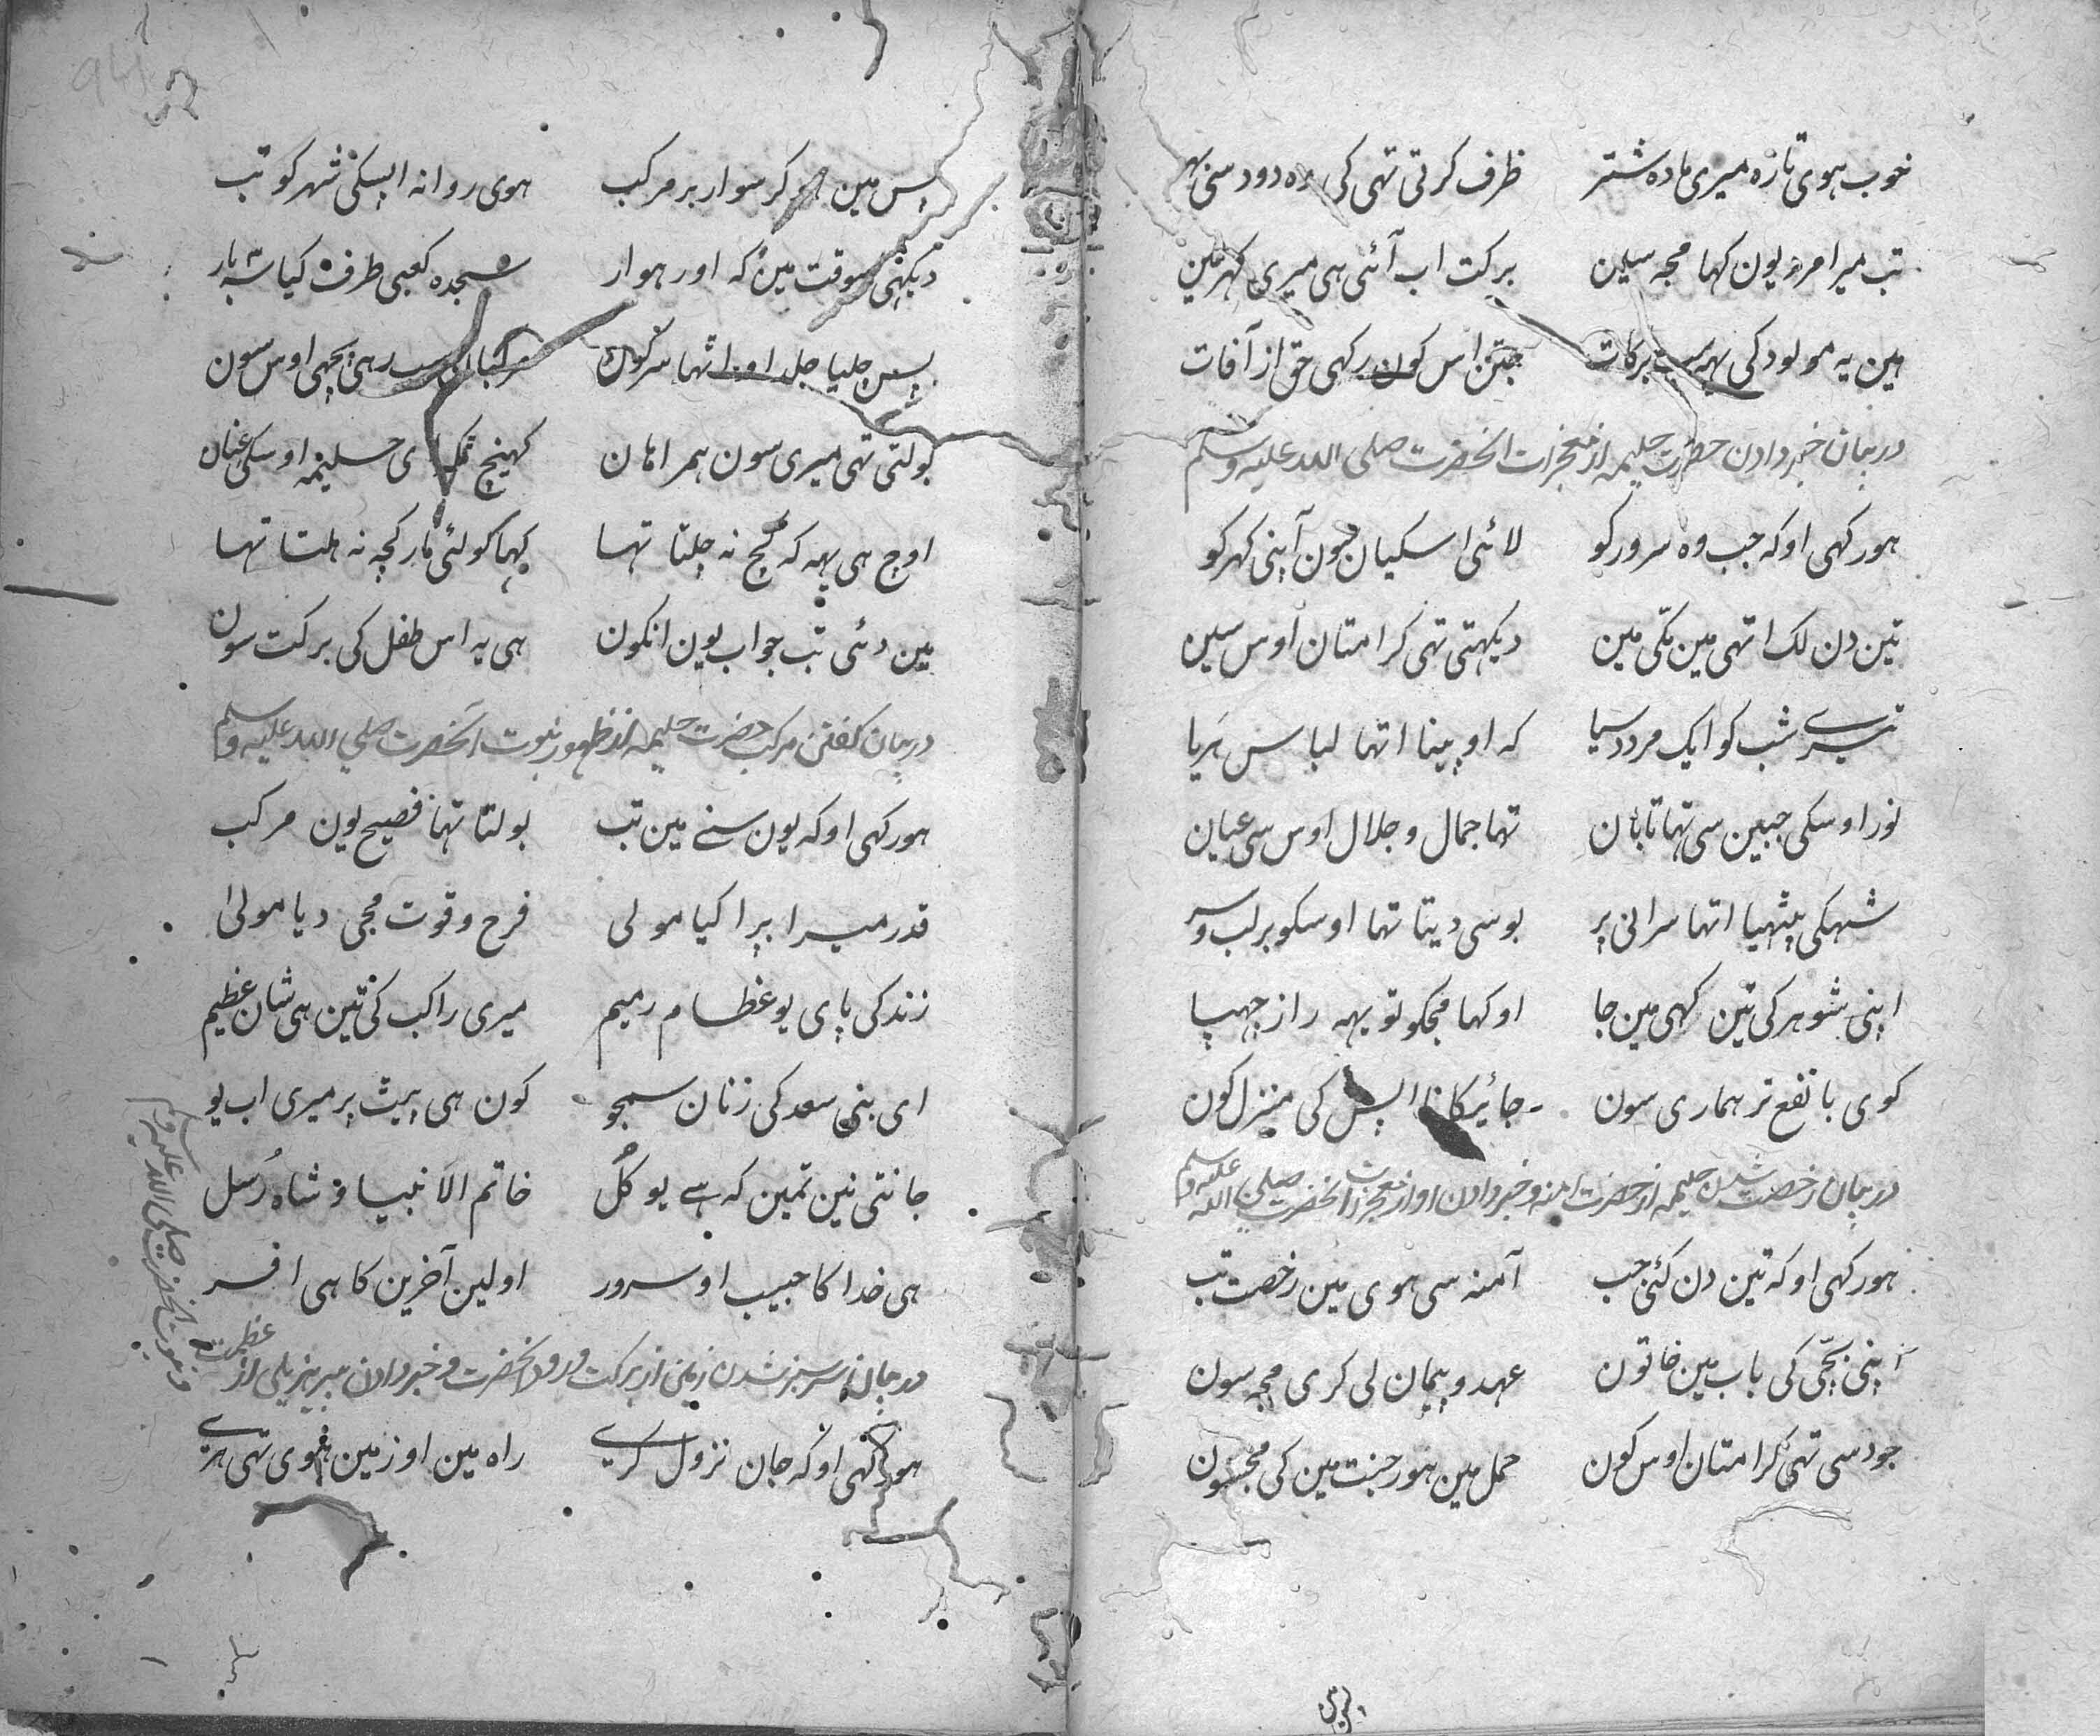 خوب ہوی تازہ میری مادہ شتر ظرف کرتی تہی کی وہ دود سنی بہر
تب میرا مرد یون کہا مجہ سین برکت اب آئی ہی میری کہر مین
ہین یہ مولود کی یہہ سب برکات جتن اس کون رکہی حق از آفات
دربیان خبر دادن حضرت حلیمہ از معجزات انحضرت صلی اللہ علیہ وسلم
ہور کہی او کہ جب وہ سرور کو لائی اسکیان جیون آپنی کہر کو
تین دن لک اتہی مین مکی مین دیکہتی تہی کرامتان اوس سین
تیسرے شب کو ایک مرد دسیا کہ او پینا اتہا لباس ہریا
نور اوسکی جبین سی تہا تابان تہا جمال و جلال اوس سی عیان
شہکی بیٹہیا اتہا سرانی پر بوسی دیتا تہا اوسکو بر لب و سر
اپنی شوہر کی تین کہی مین جا او کہا مجکو تو یہہ راز چہپا
کوی با نفع تر ہماری سون جائیکا نا اپس کی منزل کون
دربیان رخصت شدن حلیمہ از حضرت امنہ و خبر دادن او از معجزات انحضرت صلی اللہ علیہ وسلم
ہور کہی او کہ تین دن کئی جب آمنہ سی ہوی مین رخصت تب
اپنی بچی کی باب مین خاتون عہد و پیمان لی کری مجہ سون
جو دسی تہی کرامتان اوس کون حمل مین ہور جنت مین کی مجسون
پس مین ہو کر سوار بر مرکب ہوی روانہ اپسکی شہر کو تب
دیکہی سوقت مین کہ اور ہوار سجدہ کعبی طرف کیا سہ بار
پس چلیا جلد اور اٹہا سر کون سب رہی پچہی اوس سون
بولتی تہی میری سون ہمراہان کہینچ ٹک ای حلیمہ اوسکی عنان
اوج ہی یہہ کہ کچ نہ چلتا تہا کہما کو لئی مار کچہ نہ ہلتا تہا
مین دئی تب جواب یون انکون ہی یہ اس طفل کی برکت سون
دربیان کفتن مرکب حضرت حلیمہ از ظہور نبوت آنحضرت صلی اللہ علیہ وسلم
ہور کہی او کہ یون سنے مین تب بولتا تہا فصیح یون مرکب
قدر میرا بڑا کیا مولی فرح و قوت مجی دیا مولیٰ
زندکی پای یو عظام رمیم میری راکب کی تین ہی شان عظیم
ای بنی سعد کی زنان سمجو کون ہی پیٹ پر میری اب یو
جانتی نین تمین کہ ہے یو کل خاتم الانبیا و شاہ رسل
ہی خدا کا حبیب او سرور اولین آخرین کا ہی افسر
دربیان سرسبز شدن زمین از برکت ورود انحضرت و خبر دادن از عظمت
و نبوت انحضرت صلی اللہ علیہ وسلم
ہور کہی او کہ جان نزول کرے راہ مین او زمین ہوی تہی ہرے